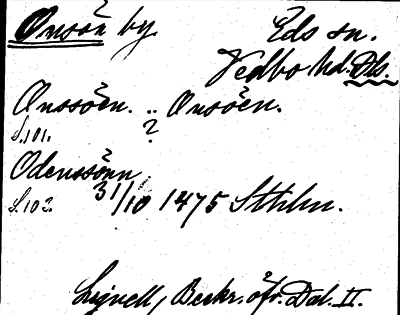 Onsön by. Eds sn.
Vedbo hd. Dls.
Onssöen. .. Onsöen.
S.101. ?
Odenssönn
S.102. 31/10 1475 Sthlm.
Lignell, Beskr. öfv. Dal. II.